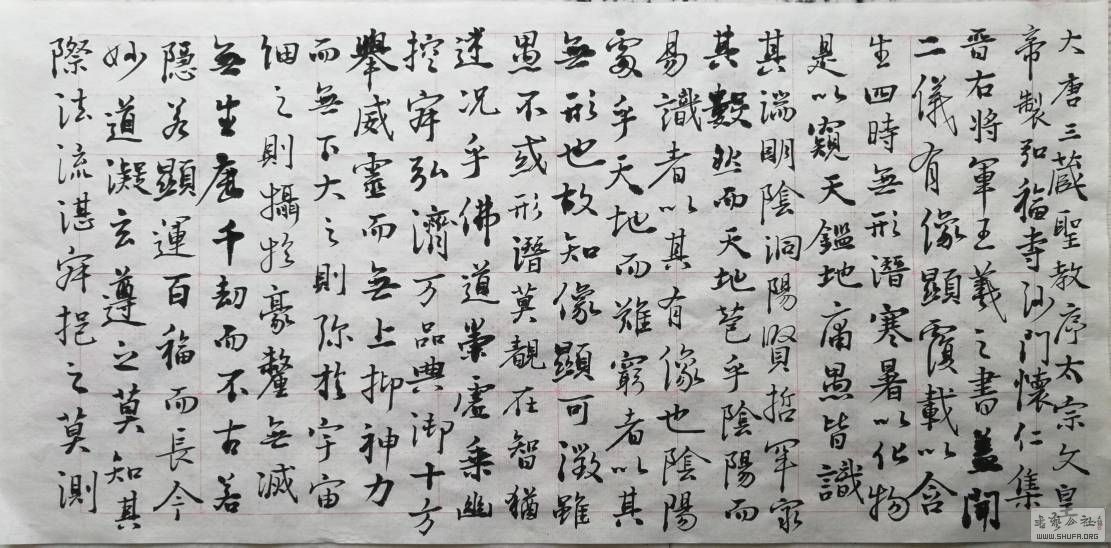 大唐三蔵聖教序太宗文皇
帝製弘福寺沙門懷仁集
晋右将軍王羲之書蓋聞
二儀有像顯覆載以含
生四時無形潛寒暑以化物
是以窺天鑑地庸愚皆識
其端明陰洞陽賢哲罕窮
其數然而天地苞乎陰陽而
易識者以其有像也陰陽
處乎天地而難窮者以其
無形也故知像顯可徵雖
愚不或形潛莫覩在智猶
迷況乎佛道崇虛乘幽
控寂弘濟万品典御十方
舉威靈而無上抑神力
而無下大之則弥於宇宙
細之則攝於豪釐無滅
無生歷千劫而不古若
隱若顯運百福而長今
妙道凝玄遵之莫知其
際法流湛寂挹之莫測
书艺公社
WWW.SHUFA.ORG